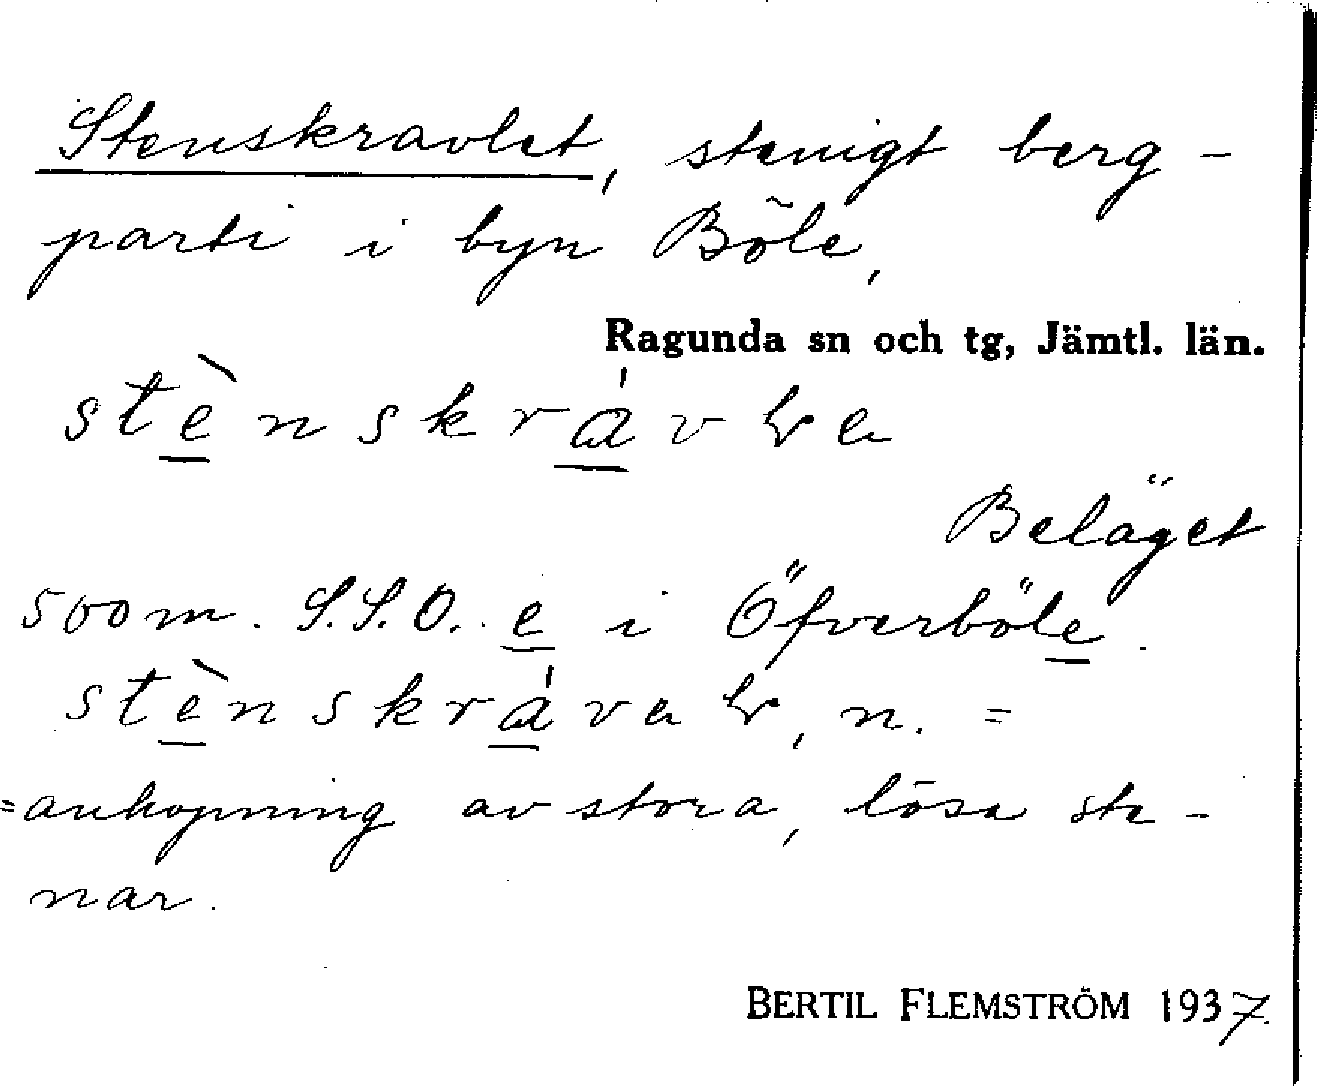 Stenskravlet, stenigt berg-
parti i byn Böle,
Ragunda sn och tg, Jämtl. län.
stè̲nskrá̲vɽa
Beläget
500 m. S.S.O. e̲ i Öfverböle̲.
stè̲nskrá̲vaɽ, n. =
= anhopning av stora, lösa ste-
nar.
BERTIL FLEMSTRÖM 1937.